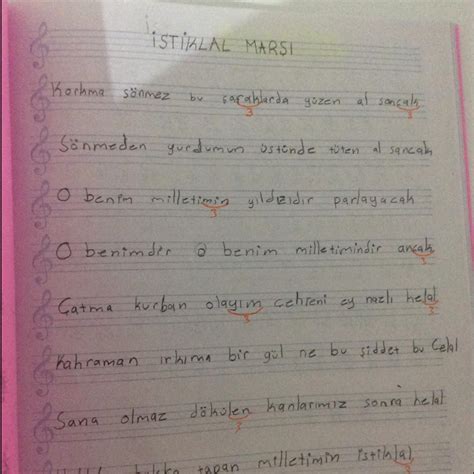 İSTİKLAL MARŞI
Korkma sönmez bu şafaklarda yüzen al sancak
3 3
Sönmeden yurdumun üstünde tüten al sancak
O benim milletimin yıldızıdır parlayacak
3
O benimdir O benim milletimindir ancak
3
Çatma kurban olayım çehreni ey nazlı helal
3 3
Kahraman ırkıma bir gül ne bu şiddet bu Celal
Sana olmaz dökülen kanlarımız sonra helal
3
tapan milletimin istiklal
3